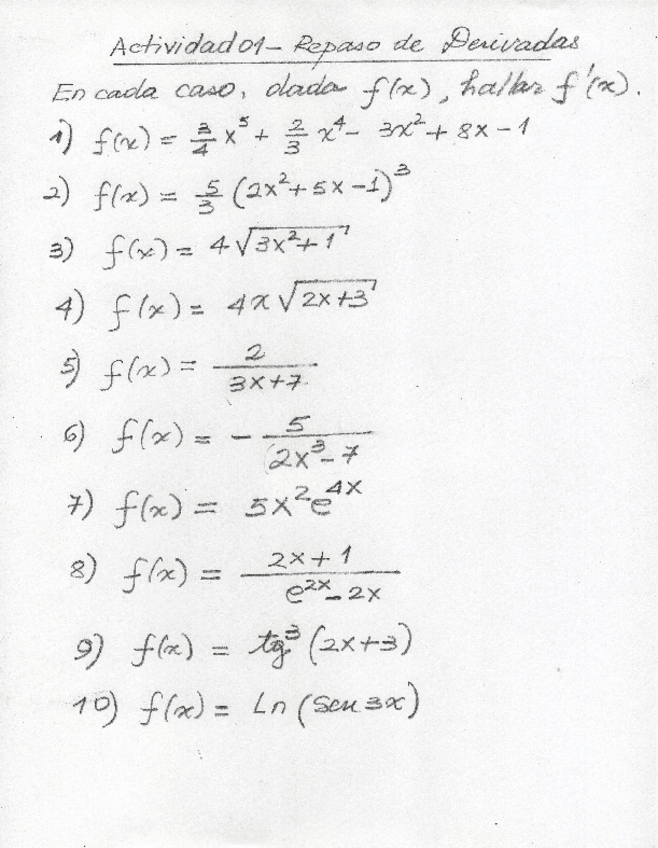 Actividad 01 - Repaso de Derivadas
En cada caso, dada f(x), hallar f'(x).
1) f(x) = 3/4 x⁵ + 2/3 x⁴ - 3x² + 8x - 1
2) f(x) = 5/3 (2x² + 5x - 1)³
3) f(x) = 4√(3x² + 1)
4) f(x) = 4x√(2x+3)
5) f(x) = 2/(3x+7)
6) f(x) = - 5/(2x³ - 7)
7) f(x) = 5x²e⁴ˣ
8) f(x) = (2x+1)/(e²ˣ - 2x)
9) f(x) = tg³(2x+3)
10) f(x) = Ln(Sen 3x)